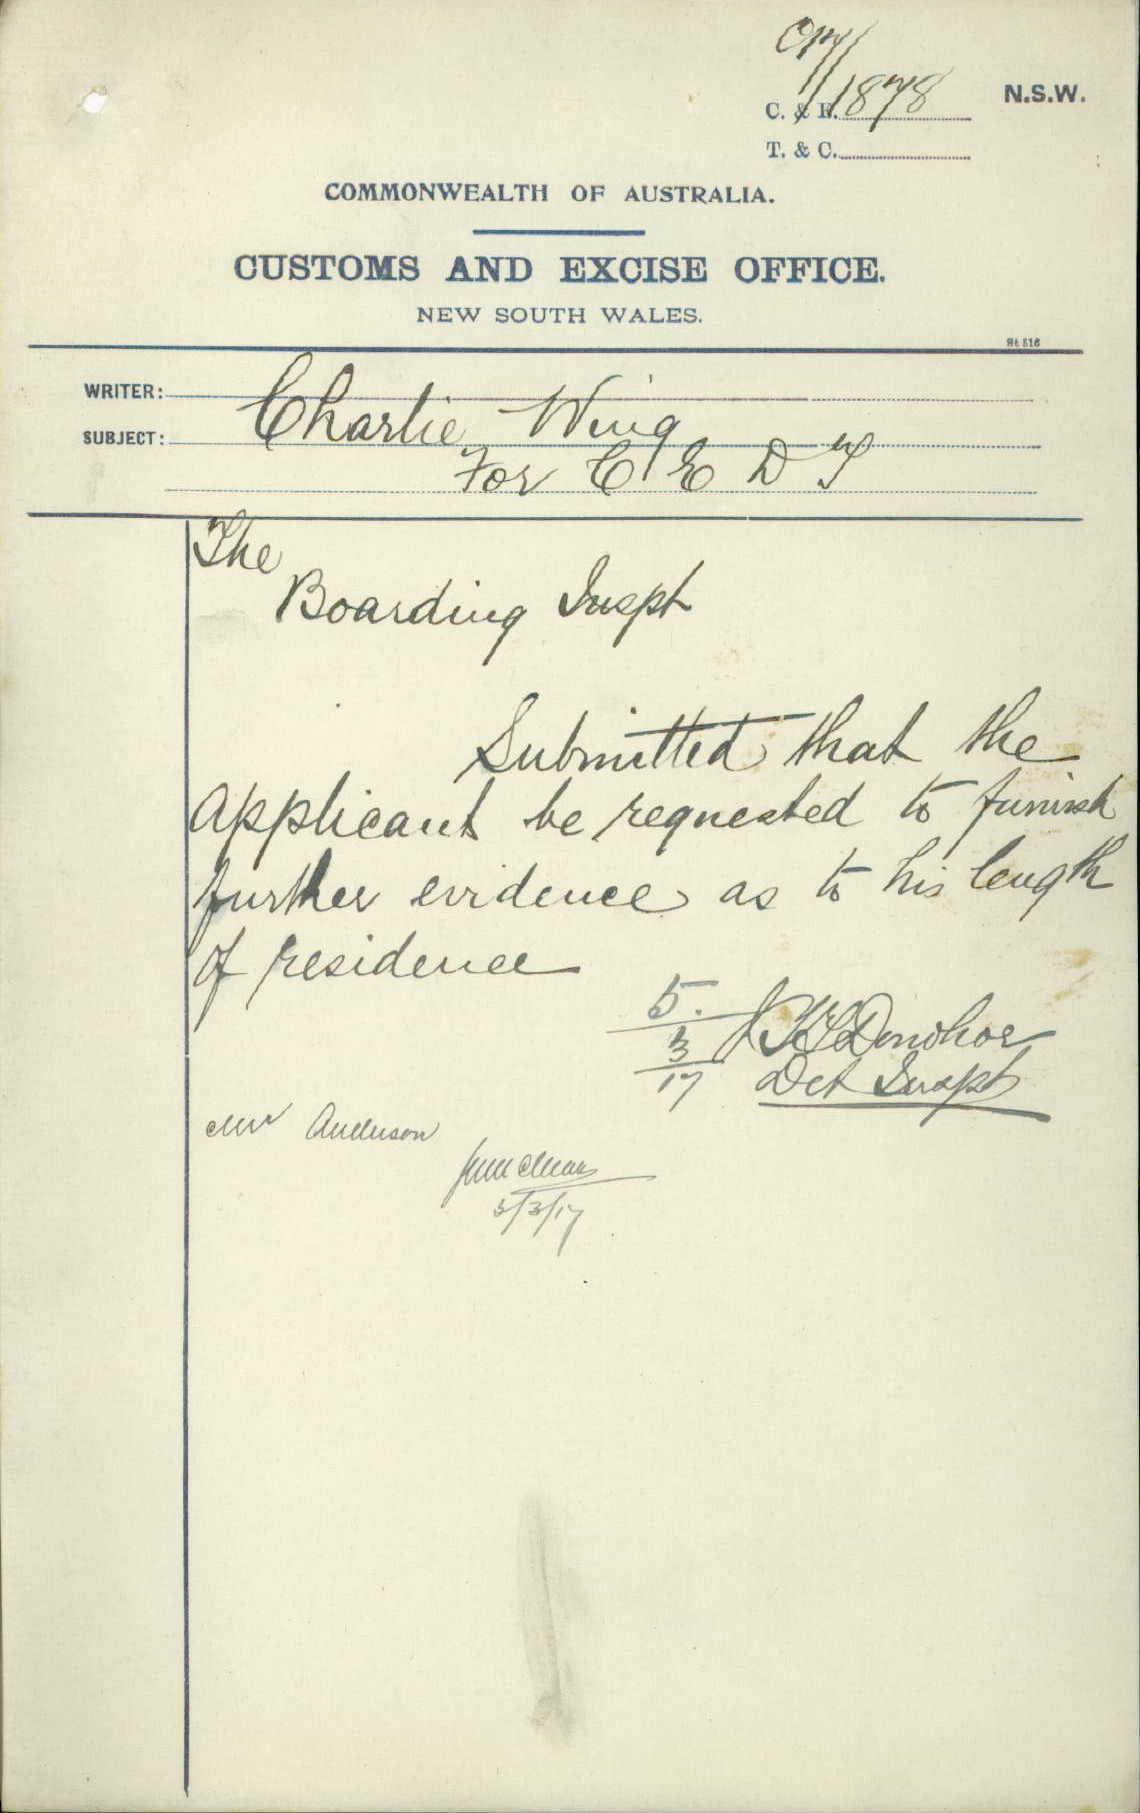 C. & E. 17/1878
N.S.W.
T. & C.
COMMONWEALTH OF AUSTRALIA.
CUSTOMS AND EXCISE OFFICE.
NEW SOUTH WALES.
WRITER:
SUBJECT: Charlie Wing
For C E D T
The
Boarding Inspt
Submitted that the
applicant be requested to furnish
further evidence as to his length
of residence
5.
3
17
Donohoe
Det Inspt
Mr Anderson
5/3/17